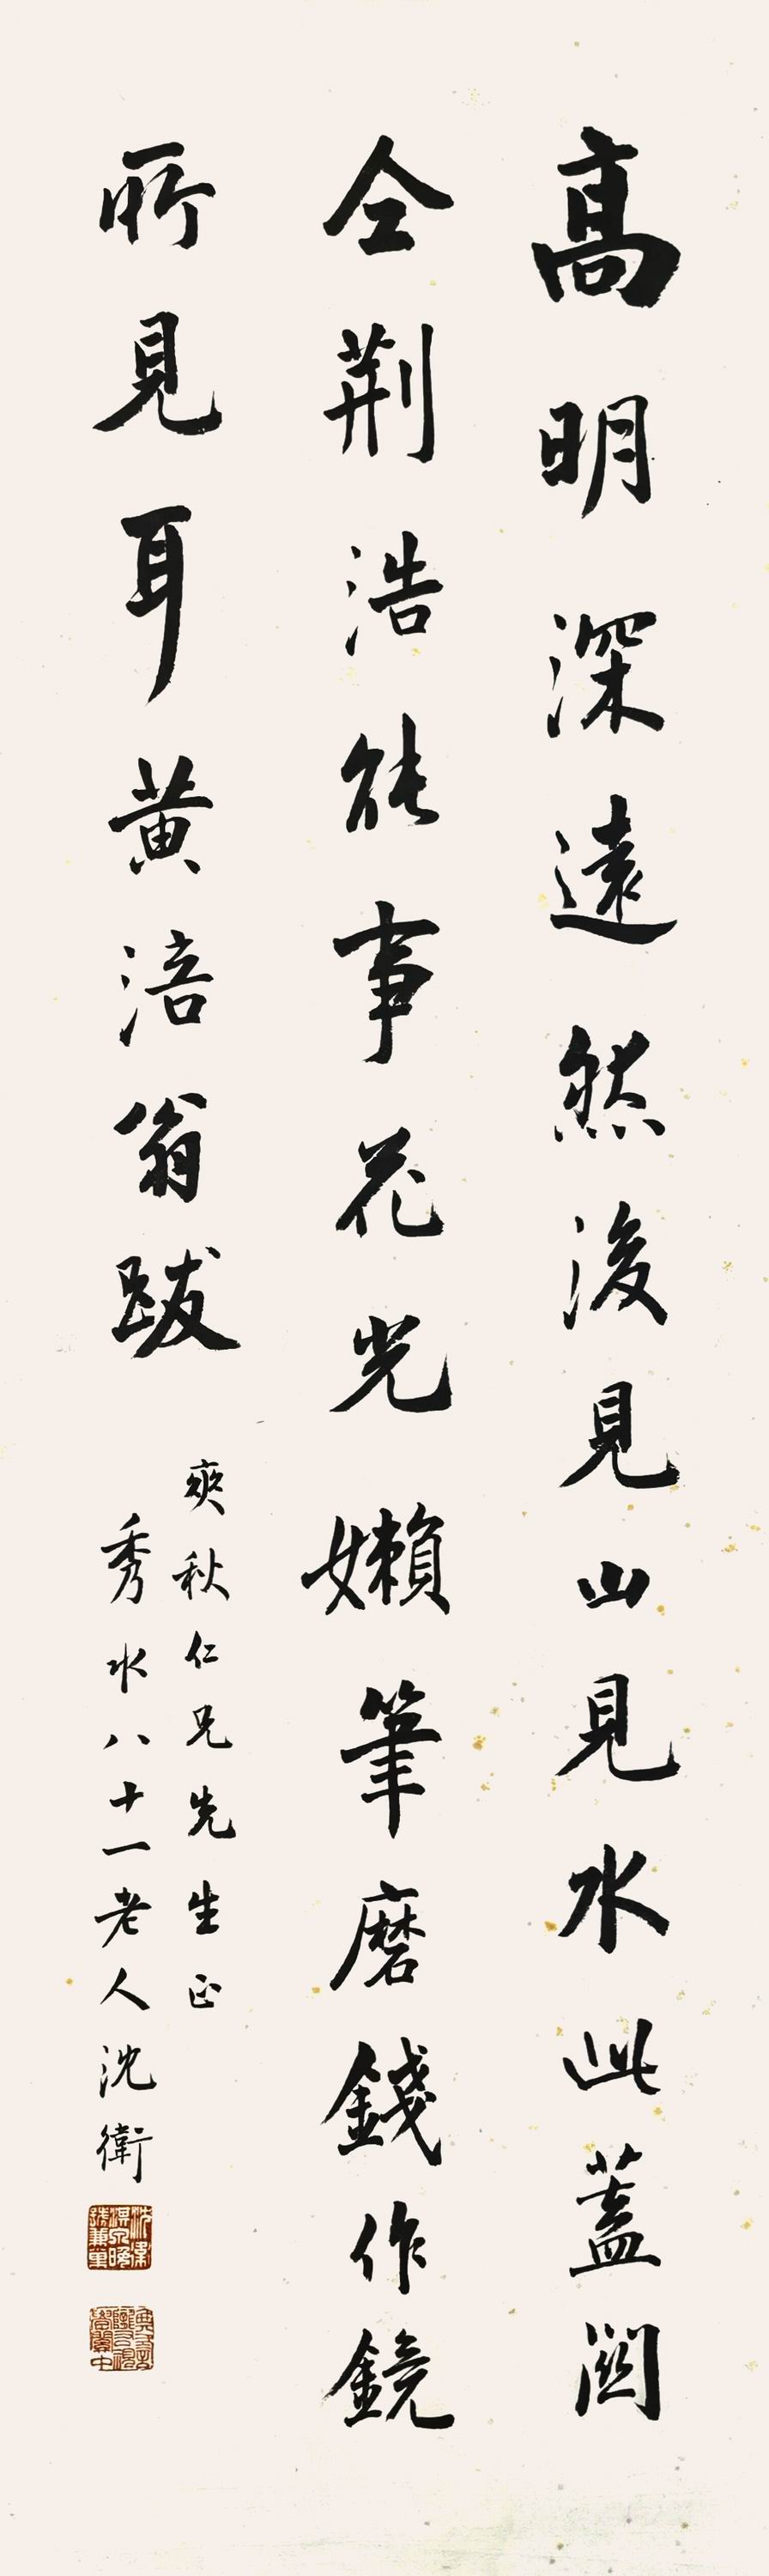 高明深遠然後見山見水此蓋關
仝荆浩能事花光嬾筆磨錢作鏡
所見耳黃涪翁跋
爽秋仁兄先生正
秀水八十一老人沈衛